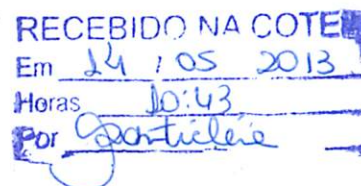 RECEBIDO NA COTE
Em 14 / 05 2013
Horas 10:43
Por